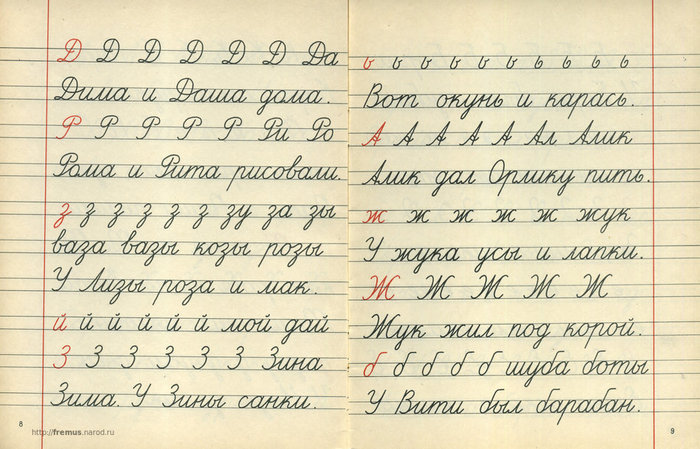 Д Д Д Д Д Д Да
Дима и Даша дома.
Р Р Р Р Р Ри Ро
Рома и Рита рисовали.
з з з з з з зу за зы
ваза вазы козы розы
У Лизы роза и мак.
й й й й й й мой дай
З З З З З З З Зина
Зима. У Зины санки.
8
http://fremus.narod.ru
ь ь ь ь ь ь ь ь ь ь
Вот окунь и карась.
А А А А А Ал Алик
Алик дал Орлику пить.
ж ж ж ж ж жук
У жука усы и лапки.
Ж Ж Ж Ж Ж
Жук жил под корой.
б б б б б шуба боты
У Вити был барабан.
9